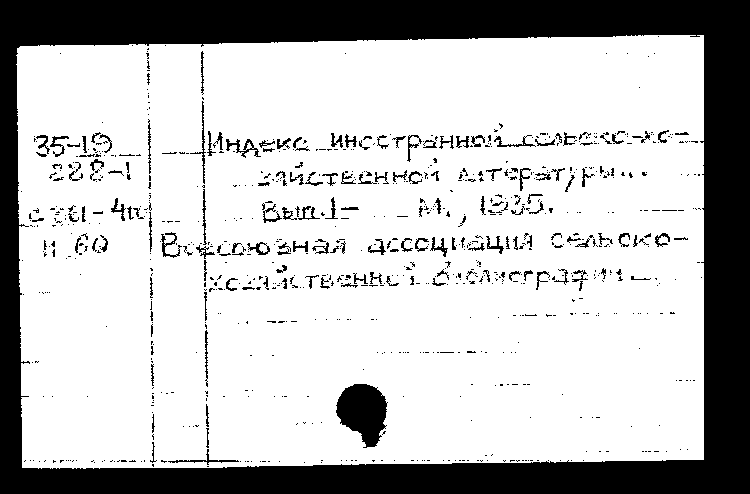 35-19 Индекс иностранной сельско-хо-
228-1 зяйственной литературы...
Вып.1- М., 1935.
И 60 Всесоюзная ассоциация сельско-
хозяйственной библиографии...